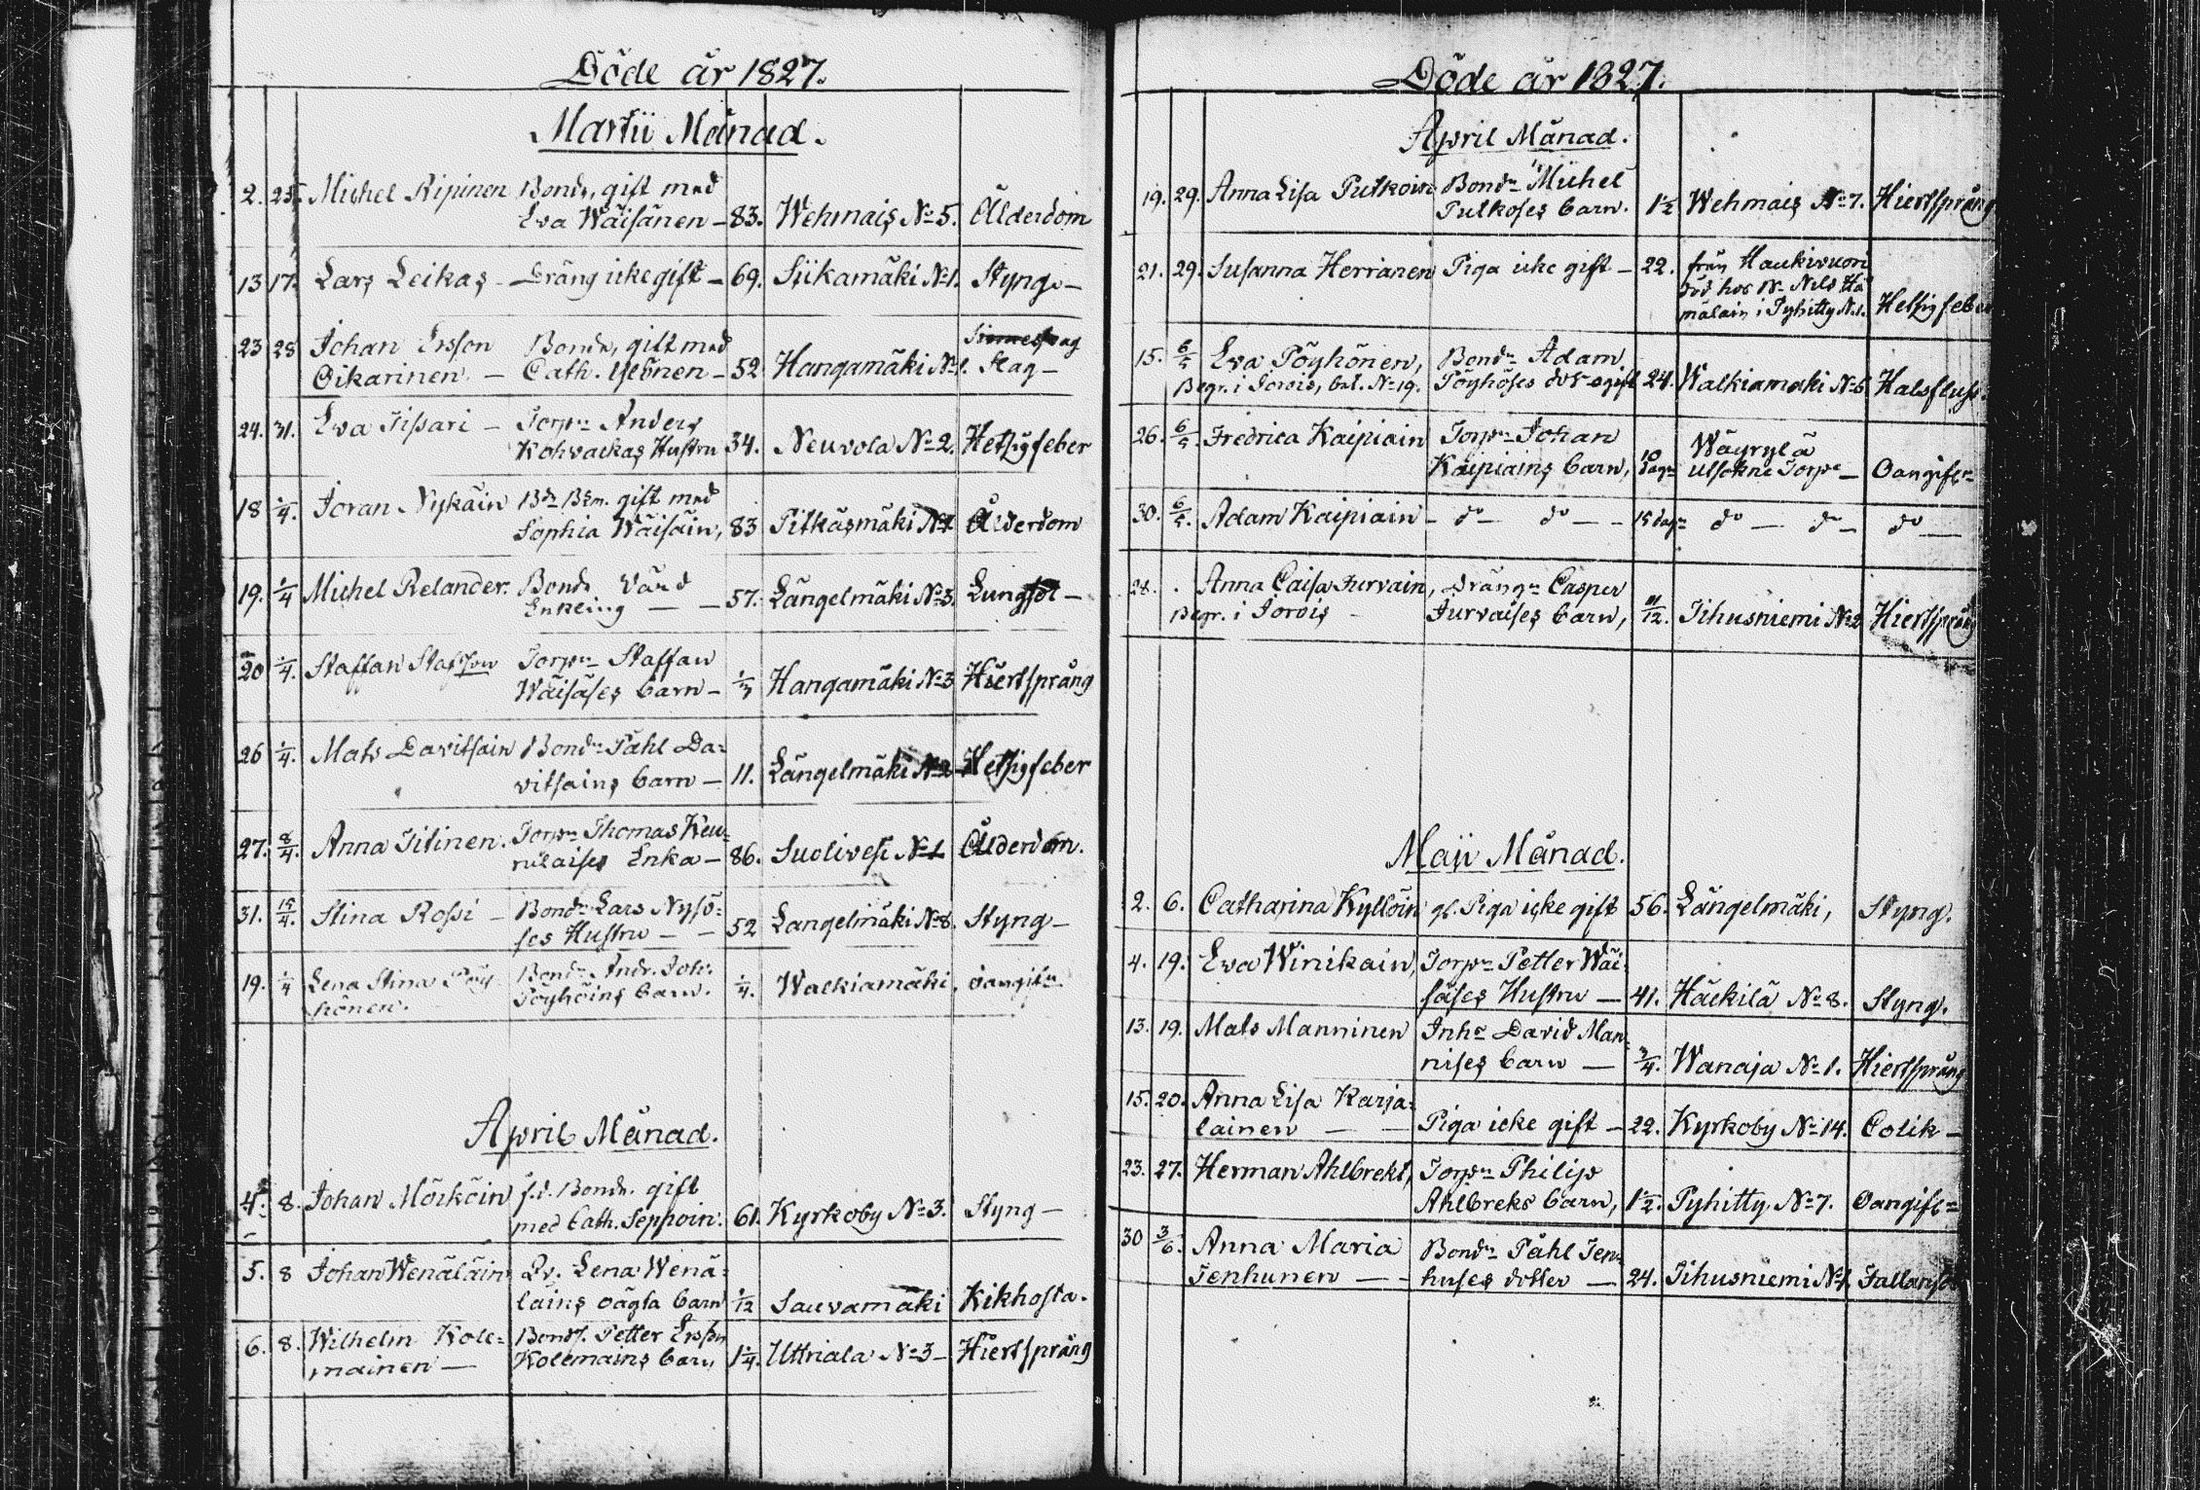 Döde år 1827.
Martii Månad.
2. 25. Michel Ripinen Bond, gift med
Eva Wäisänen - 83. Wehmais No 5. Ålderdom
13 17. Lars Leikas - Dräng icke gift - 69. Siikamäki No 1. Styng -
23 28 Johan Ersson Bonde, gift med
Oikarinen - Cath. - 52 Hangamäki No 1. Hag -
24. 31. Eva Tissari - Torpn Anders
Kohvackas Hustru 34. Neuvola No 2. Hetsigfeber
18 1/4. Joran Nykäin Bdn Bem. gift med
Sophia Wäisäin, 83 Pitkäsmäki No 1 Ålderdom
19. 1/4 Michel Relander. Bonde Värd
Enkling - - 57. Längelmäki No 3. Lungsot -
20 1/4. Staffan Staffson Torpn Staffan
Wäisäses barn - 1/3 Hangamäki No 3 Hiertsprång
26 1/4. Mats Davitsain Bondn Påhl Da=
vitsains barn - 11. Längelmäki No 2 Hetsigfeber
27. 8/4. Anna Titinen. Torpn Thomas Keu=
rulaises Enka - 86. Suolivesi No 1 Ålderdom.
31. 15/4. Stina Rossi - Bondn Lars Nysö=
ses Hustru - - 52 Längelmäki No 8. Styng -
19. 1/4 Lena Stina Pöy=
hönen. Bondn Andr. Joh.
Pöyhöins barn. 1/4. Walkiamäki, oangifn.
April Månad.
4. 8. Johan Mörköin f.d. Bonde. gift
med Cath. Seppoin. 61. Kyrkoby No 3. Styng -
5. 8 Johan Wenäläin Qv. Lena Wenä=
läins oägta barn 1/12 Sauvamäki Kikhosta.
6. 8. Wilhelm Kole=
mainen - Bondn. Petter Erssn
Kolemains barn, 1 1/4. Uttriala No 3 - Hiertsprång
Döde år 1827.
April Månad.
19. 29. Anna Lisa Putkoin Bondn Michel
Putkoses barn. 1 1/2 Wehmais No 7. Hiertsprång
21. 29. Susanna Herranen Piga icke gift - 22. från Haukivuori
död hos Bn Nils Hä
mäläin i Pyhitty No 1. Hetsigfeber
15. 6/5 Eva Pöyhönen, Bondn Adam
Begr. i Jorois, bet. No 19. Pöyhöses dotr ogift 24. Walkiamäki No 6 Halsfluss.
26. 6/5. Fredrica Kaipiain Torpn Johan
Kaipiains barn, 10 dagr Wäyrylä
Ulsokne Torp - Oangifn
30. 6/5. Adam Kaipiain - do - do - - 15 dagr do - do - do -
28. Anna Caisa Turvain, Drängn Casper
Begr. i Jorois - Turvaises barn, 11/12. Tihusniemi No 2 Hiertsprång
Maji Månad.
2. 6. Catharina Kyllöin gl. Piga icke gift 56. Längelmäki, Styng.
4. 19. Eva Winikain, Torpn Petter Wäi=
säses Hustru - 41. Häckilä No 8. Styng.
13. 19. Mats Manninen Inhn David Man=
nises barn - 3/4. Wanaja No 1. Hiertsprång
15. 20. Anna Lisa Karja=
lainen - - Piga icke gift - 22. Kyrkoby No 14. Colik -
23. 27. Herman Ahlbrekt, Torpn Philip
Ahlbreks barn, 1 1/2. Pyhitty No 7. Oangifn
30 3/6. Anna Maria Bondn Påhl Ten=
Tenhunen - - huses dotter - 24. Tihusniemi No 1. Fallandsot